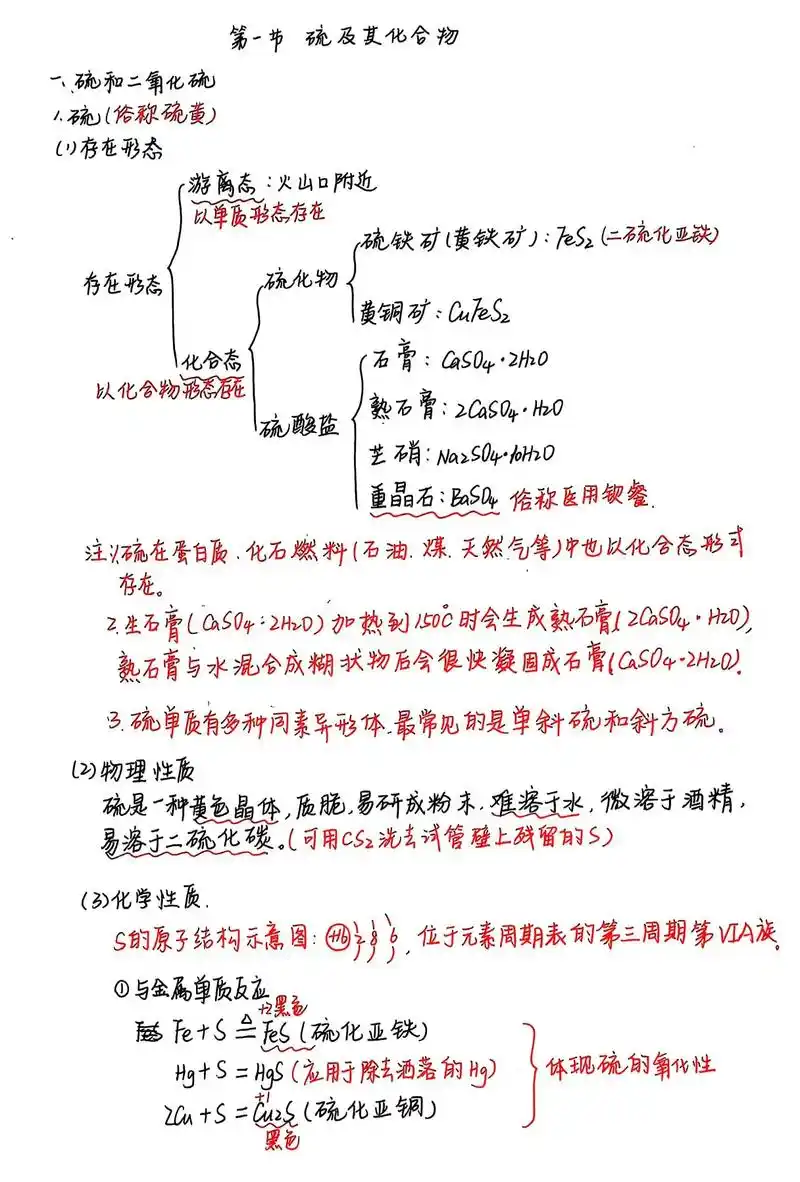 第一节 硫及其化合物
一、硫和二氧化硫
1.硫(俗称硫黄)
(1)存在形态
游离态:火山口附近
以单质形态存在
硫铁矿(黄铁矿):FeS2(二硫化亚铁)
存在形态
硫化物
黄铜矿:CuFeS2
化合态
石膏:CaSO4·2H2O
以化合物形态存在
熟石膏:2CaSO4·H2O
硫酸盐
芒硝:Na2SO4·10H2O
重晶石:BaSO4 俗称医用钡餐.
注:1.硫在蛋白质、化石燃料(石油、煤、天然气等)中也以化合态形式
存在。
2.生石膏(CaSO4·2H2O)加热到150℃时会生成熟石膏(2CaSO4·H2O),
熟石膏与水混合成糊状物后会很快凝固成石膏(CaSO4·2H2O).
3.硫单质有多种同素异形体,最常见的是单斜硫和斜方硫。
(2)物理性质
硫是一种黄色晶体,质脆,易研成粉末,难溶于水,微溶于酒精,
易溶于二硫化碳。(可用CS2洗去试管壁上残留的S)
(3)化学性质.
S的原子结构示意图:+16 2 8 6,位于元素周期表的第三周期第VIA族。
①与金属单质反应
+2黑色
Fe+S △= FeS(硫化亚铁)
Hg+S=HgS(应用于除去洒落的Hg) 体现硫的氧化性
+1
2Cu+S=Cu2S(硫化亚铜)
黑色